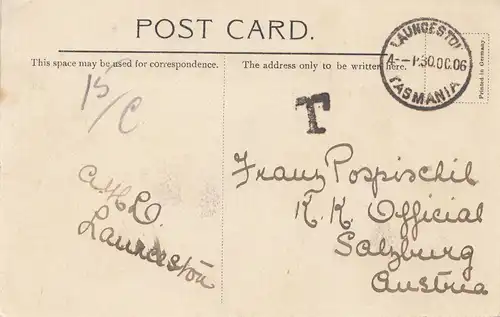 POST CARD.
This space may be used for correspondence.
The address only to be written here.
LAUNCESTON
4--P.30.OC.06
TASMANIA
Printed in Germany.
15/C
T
Franz Pospischil
K. K. Official
Salzburg
Austria
Launceston